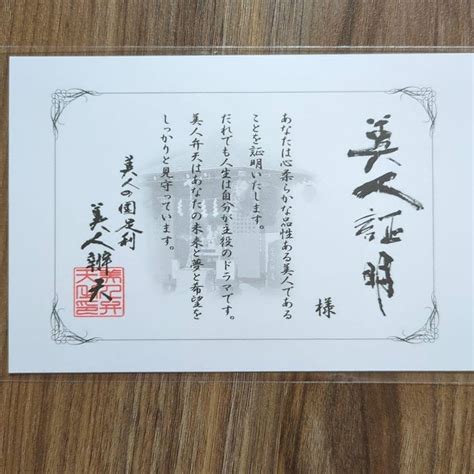 美人証明
様
あなたは心柔らかな品性ある美人である
ことを証明いたします。
だれでも人生は自分が主役のドラマです。
美人弁天はあなたの未来と夢と希望を
しっかりと見守っています。
美人の国足利
美人辨天